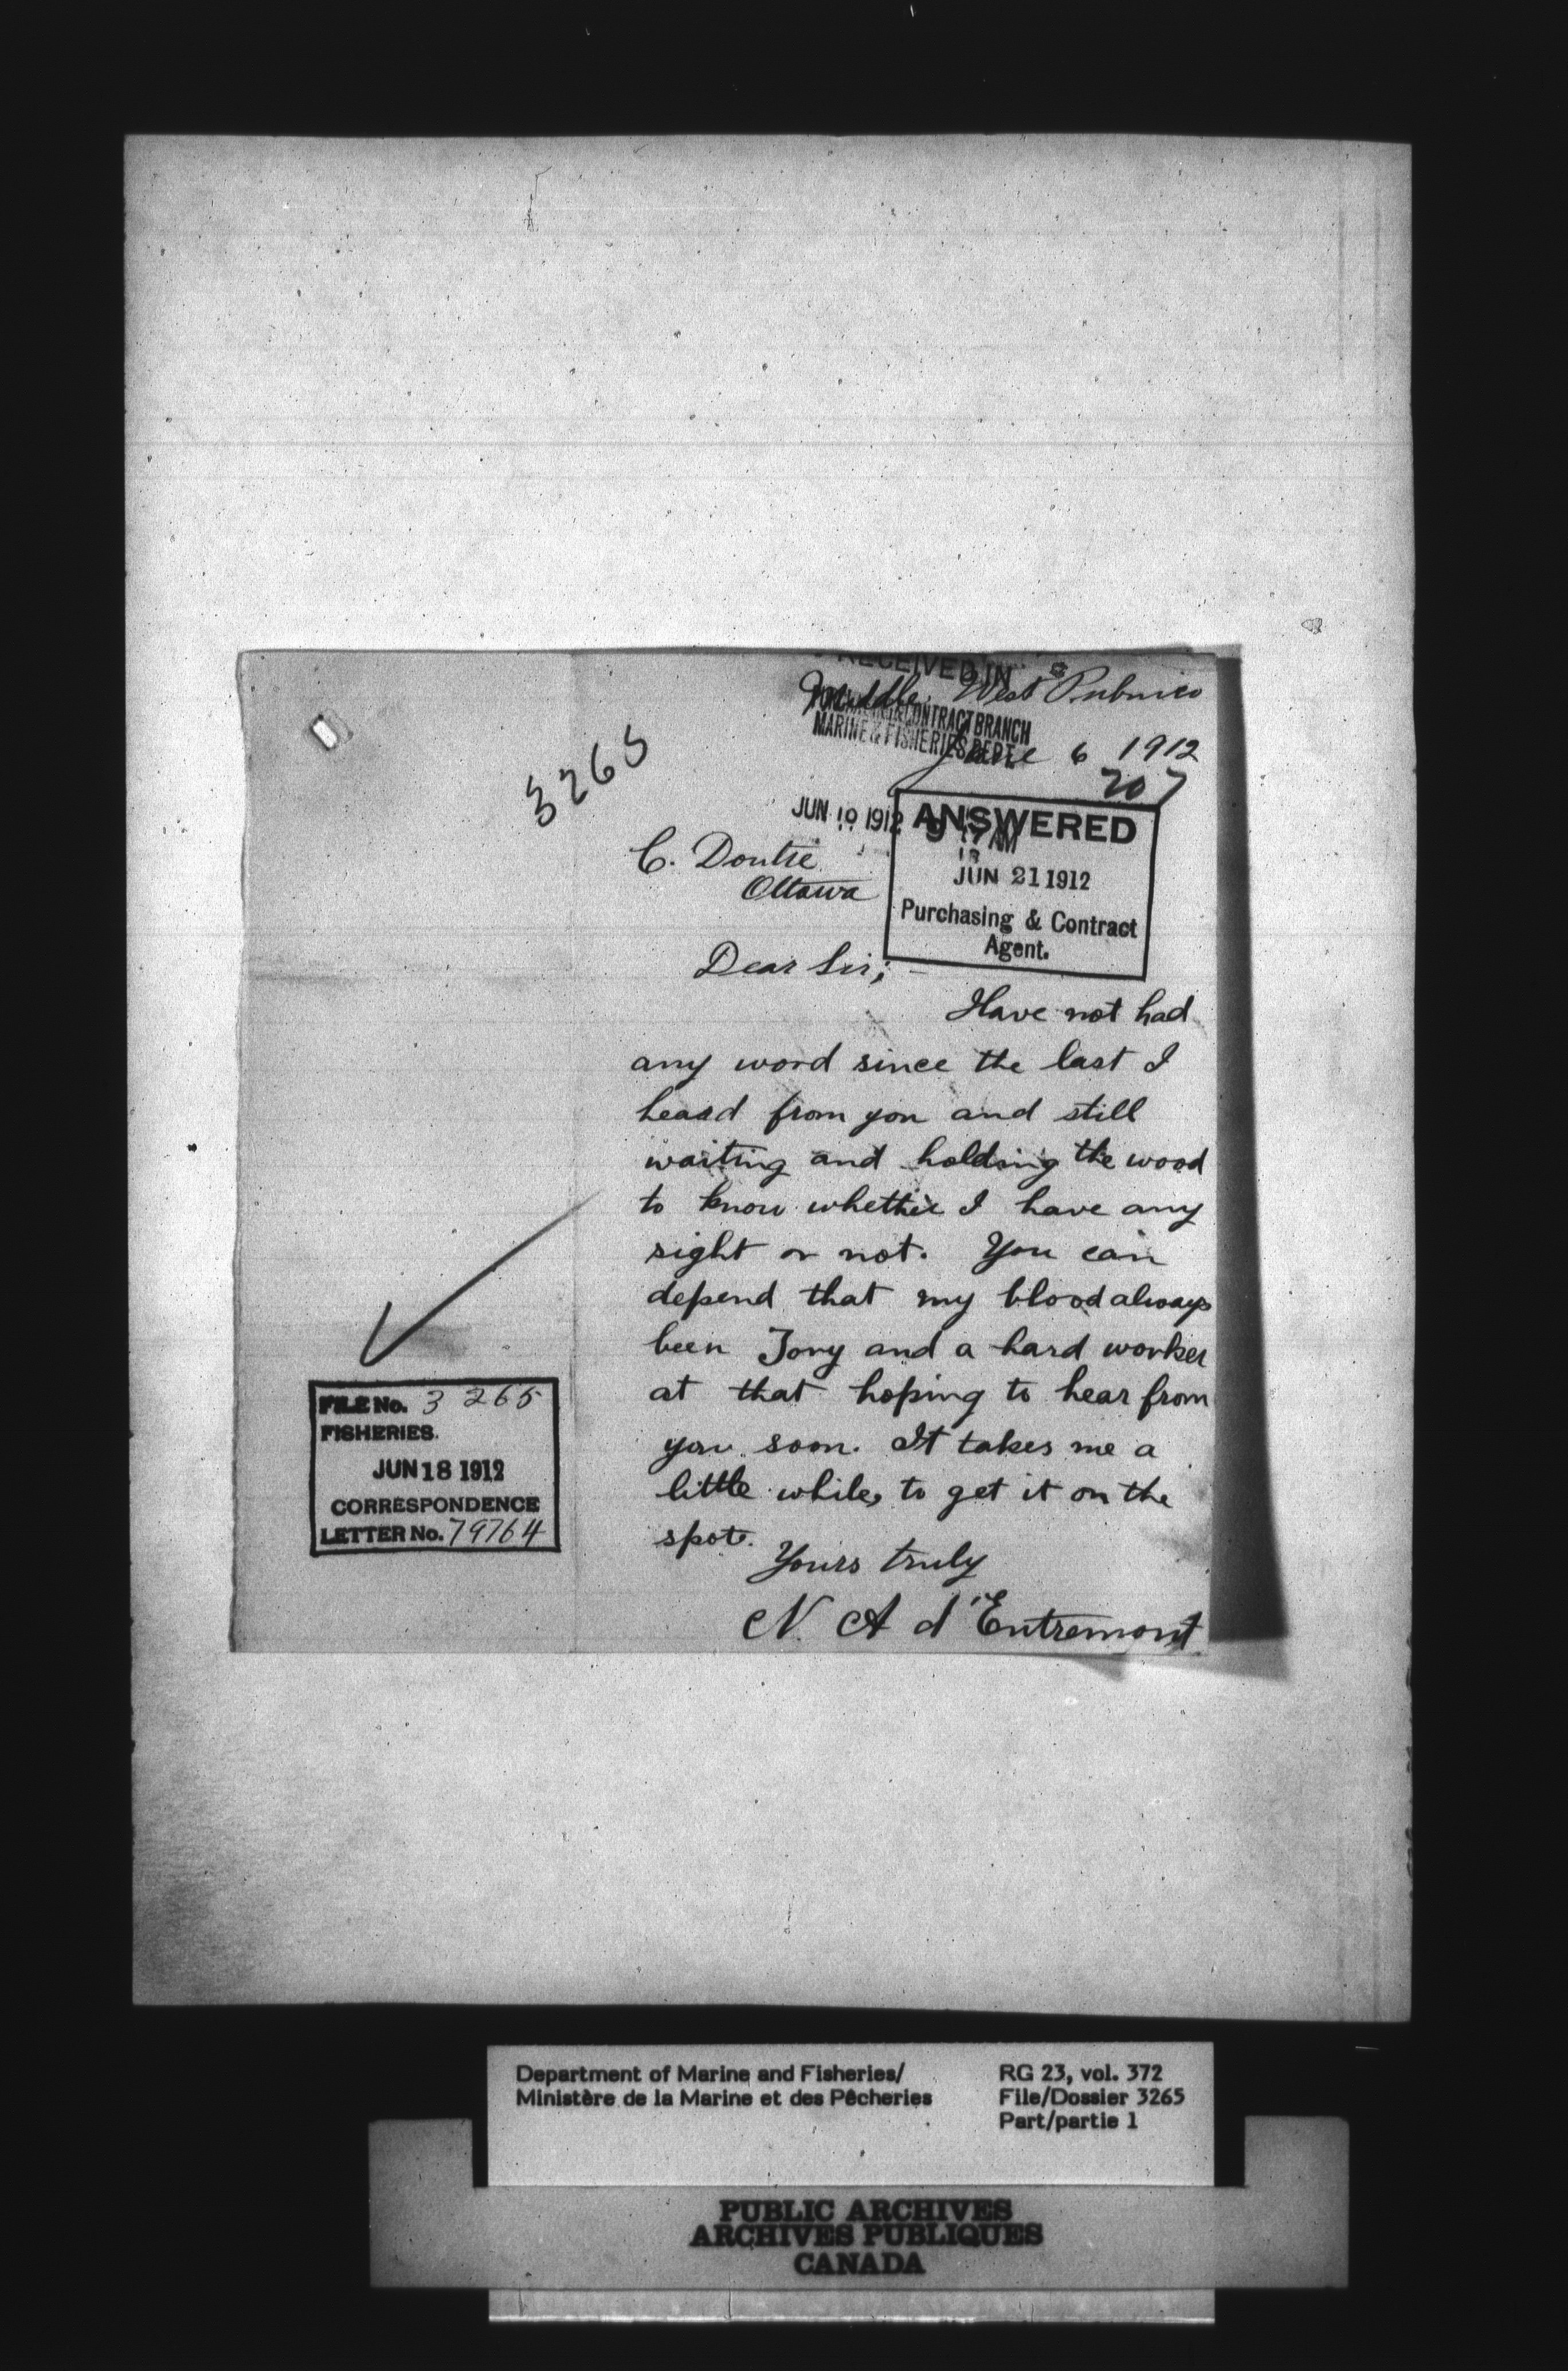 RECEIVED IN
Middle West Pubnico
CONTRACT BRANCH
MARINE & FISHERIES DEPT.
June 6 1912
207
3265
JUN 19 1912 9 17 AM
ANSWERED
JUN 21 1912
Purchasing & Contract
Agent.
C. Doutre
Ottawa
Dear Sir; -
Have not had
any word since the last I
heard from you and still
waiting and holding the wood
to know whether I have any
right or not. You can
depend that my blood always
been Tory and a hard worker
at that hoping to hear from
you soon. It takes me a
little while, to get it on the
spot.
Yours truly
N. A d'Entremont
FILE No. 3265
FISHERIES.
JUN 18 1912
CORRESPONDENCE
LETTER No. 79764
Department of Marine and Fisheries/
Ministère de la Marine et des Pêcheries
RG 23, vol. 372
File/Dossier 3265
Part/partie 1
PUBLIC ARCHIVES
ARCHIVES PUBLIQUES
CANADA